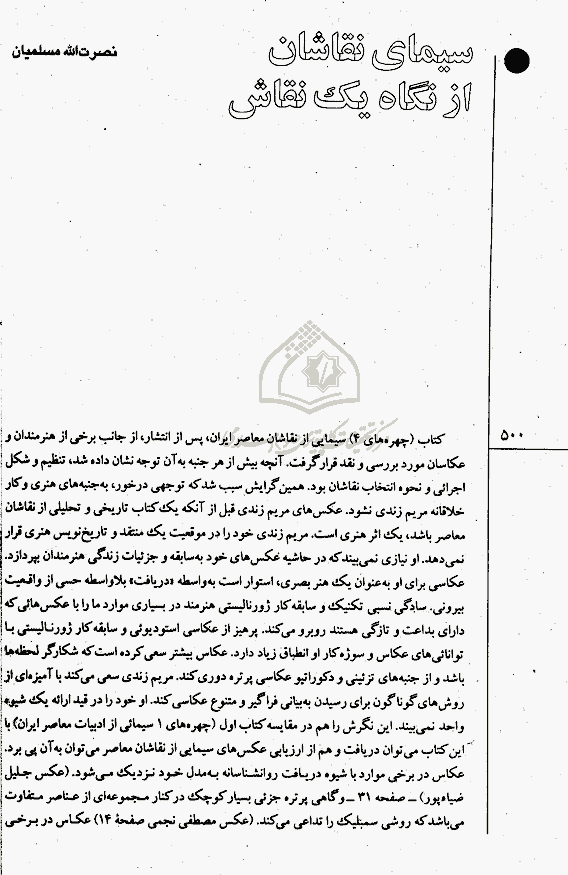 سیمای نقاشان
از نگاه یک نقاش
نصرت‌الله مسلمیان
۵۰۰
کتاب (چهره‌های ۴) سیمایی از نقاشان معاصر ایران، پس از انتشار، از جانب برخی از هنرمندان و
عکاسان مورد بررسی و نقد قرار گرفت. آنچه بیش از هر جنبه به‌آن توجه نشان داده شد، تنظیم و شکل
اجرائی و نحوه انتخاب نقاشان بود. همین گرایش سبب شد که توجهی درخور، به‌جنبه‌های هنری و کار
خلاقانه مریم زندی نشود. عکس‌های مریم زندی قبل از آنکه یک کتاب تاریخی و تحلیلی از نقاشان
معاصر باشد، یک اثر هنری است. مریم زندی خود را در موقعیت یک منتقد و تاریخ‌نویس هنری قرار
نمی‌دهد. او نیازی نمی‌بیند که در حاشیه عکس‌های خود به‌سابقه و جزئیات زندگی هنرمندان بپردازد.
عکاسی برای او به‌عنوان یک هنر بصری، استوار است به‌واسطه «دریافت» بلاواسطه حسی از واقعیت
بیرونی. سادگی نسبی تکنیک و سابقه کار ژورنالیستی هنرمند در بسیاری موارد ما را با عکس‌هائی که
دارای بداعت و تازگی هستند روبرو می‌کند. پرهیز از عکاسی استودیوئی و سابقه کار ژورنالیستی بـا
توانائی‌های عکاس و سوژه کار او انطباق زیاد دارد. عکاس بیشتر سعی کرده است که شکارگر لحظه‌ها
باشد و از جنبه‌های تزئینی و دکوراتیو عکاسی پرتره دوری کند. مریم زندی سعی می‌کند با آمیزه‌ای از
روش‌های گوناگون برای رسیدن به‌بیانی فراگیر و متنوع عکاسی کند. او خود را در قید ارائه یک شیوه
واحد نمی‌بیند. این نگرش را هم در مقایسه کتاب اول (چهره‌های ۱ سیمائی از ادبیات معاصر ایران) با
این کتاب می‌توان دریافت و هم از ارزیابی عکس‌های سیمایی از نقاشان معاصر می‌توان به‌آن پی برد.
عکاس در برخی موارد با شیوه دریافت روانشناسانه به‌مدل خود نزدیک می‌شود. (عکس جلیل
ضیاءپور) ـ صفحه ۳۱ ـ و گاهی پرتره جزئی بسیار کوچک در کنار مجموعه‌ای از عناصر متفاوت
می‌باشد که روشی سمبلیک را تداعی می‌کند. (عکس مصطفی نجمی صفحۀ ۱۴) عکاس در برخی